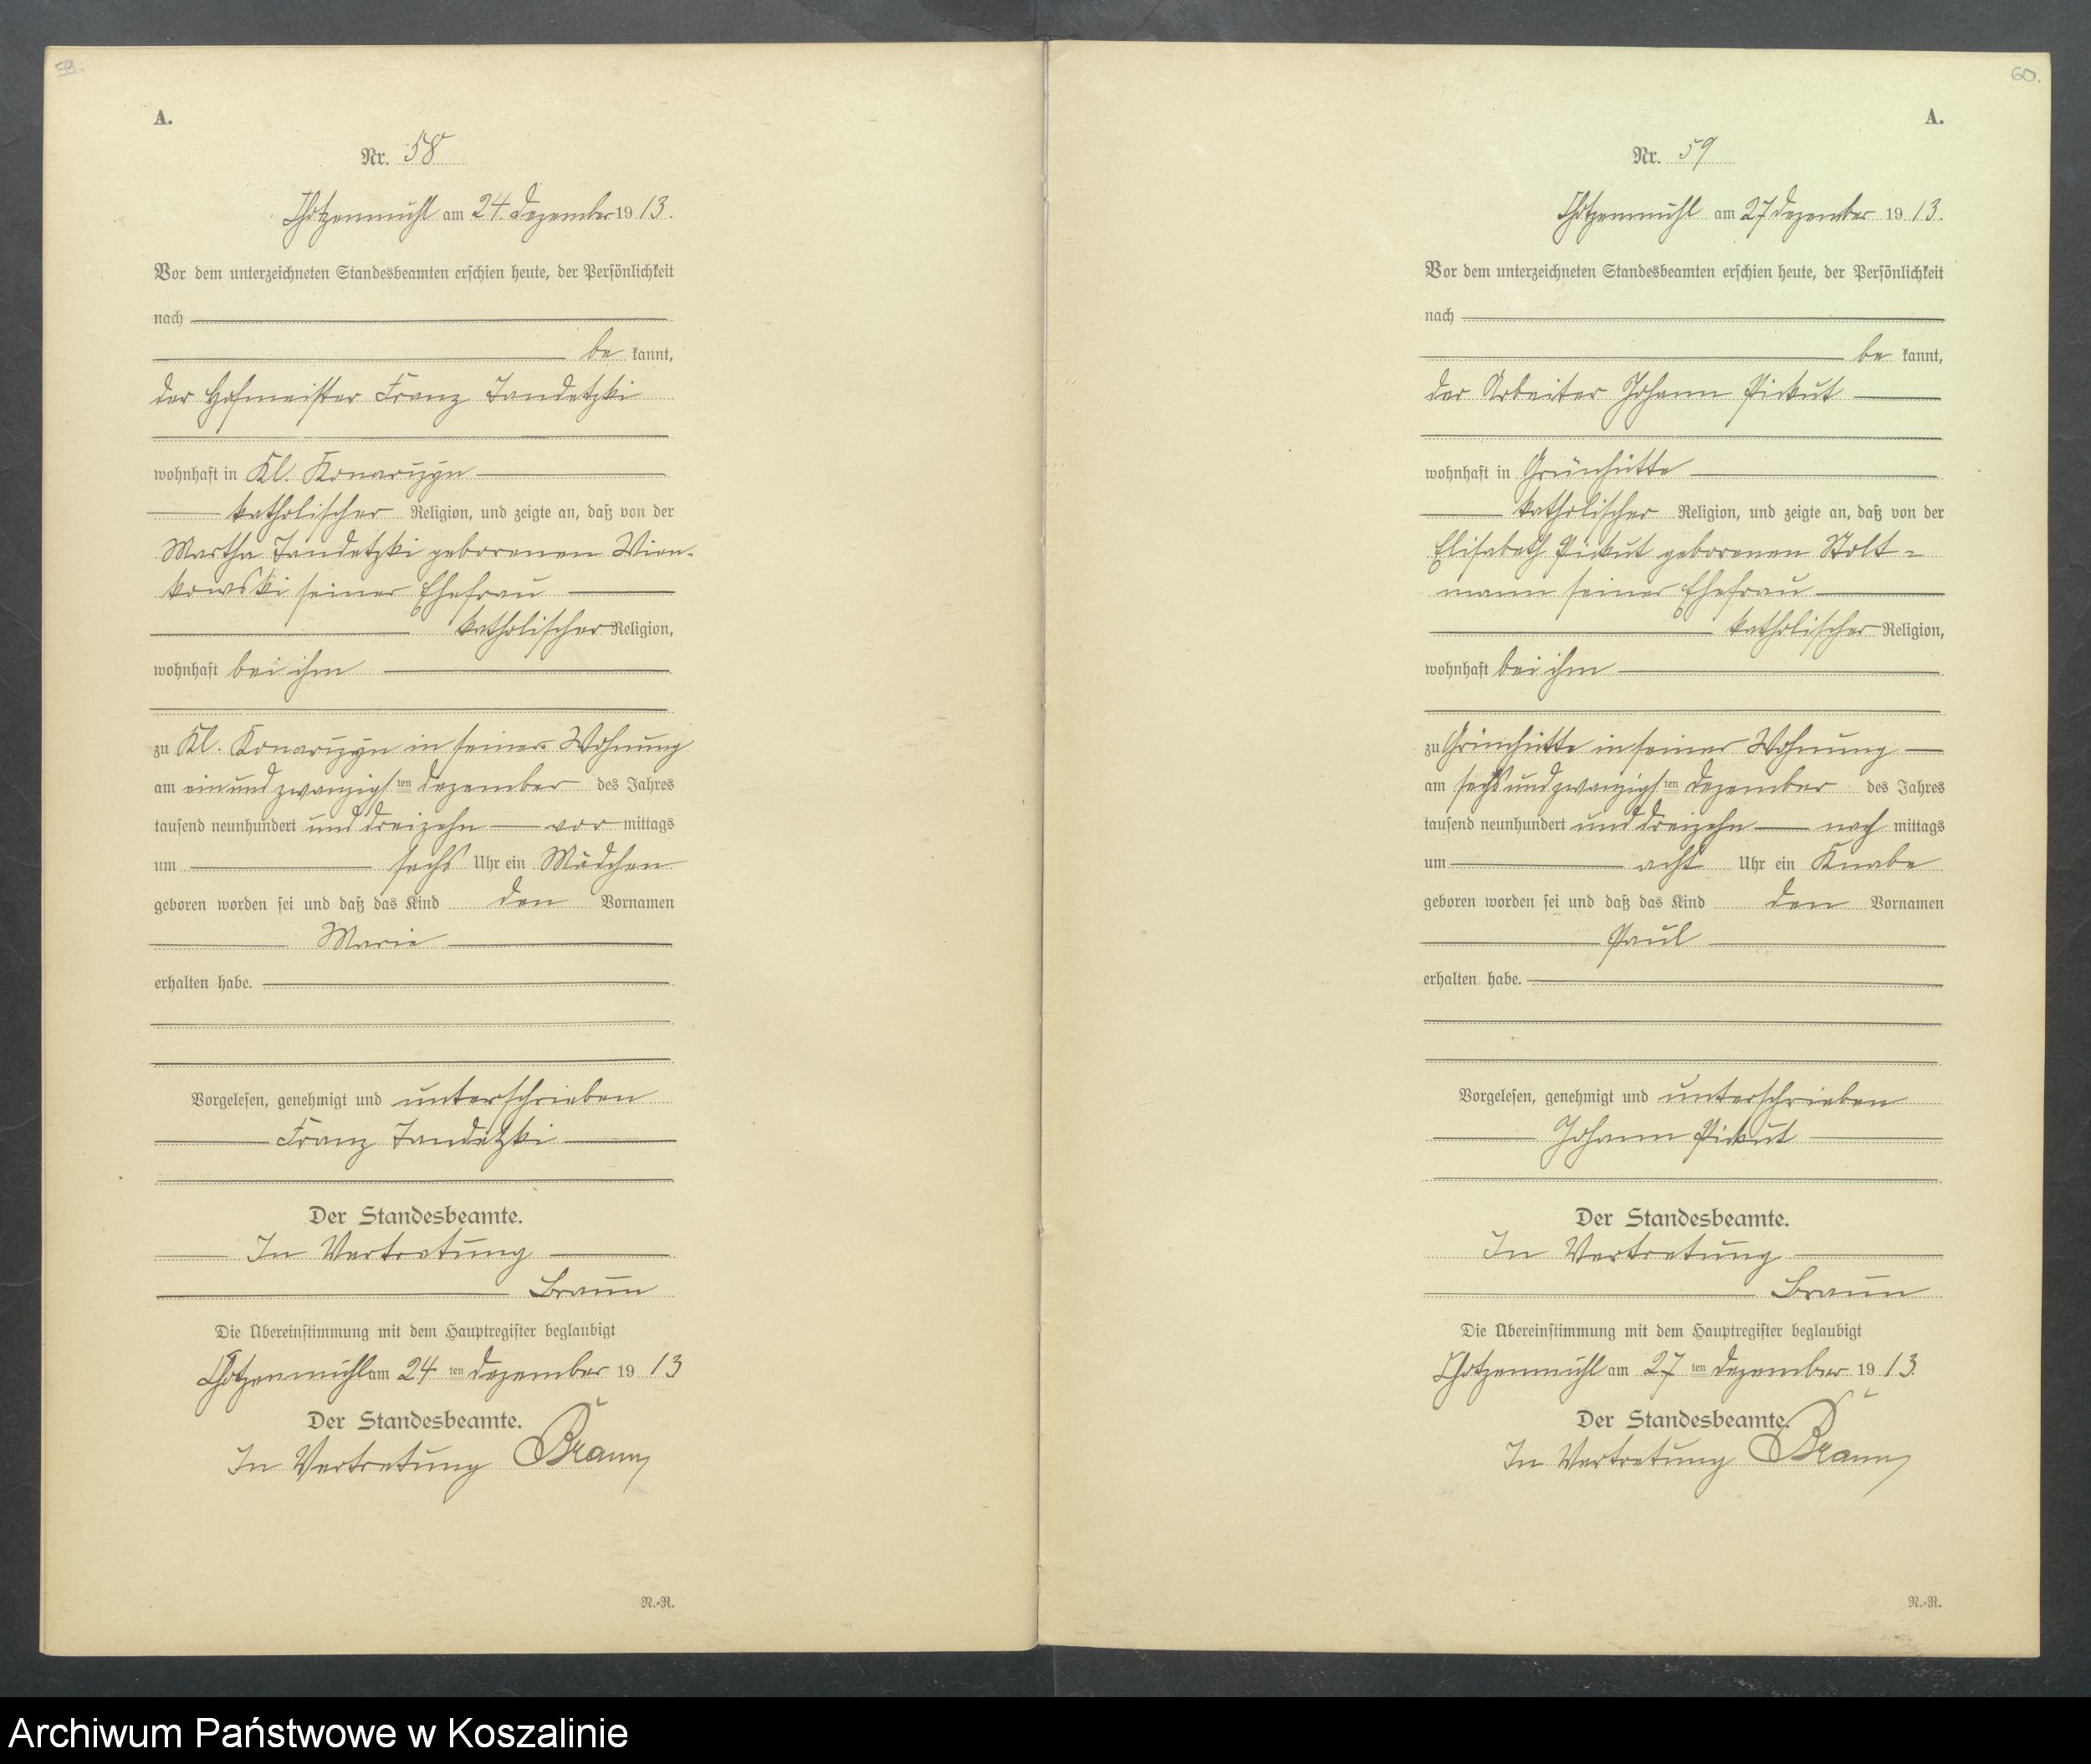 59.
A.
Nr. 58
Chotzenmühl am 24. Dezember 1913.
Vor dem unterzeichneten Standesbeamten erschien heute, der Persönlichkeit
nach
be kannt,
der Hofmeister Franz Jandetzki
wohnhaft in Kl. Konarczyn
katholischer Religion, und zeigte an, daß von der
Martha Jandetzki geborenen Wien-
kowski seiner Ehefrau
katholischer Religion,
wohnhaft bei ihm
zu Kl. Konarczyn in seiner Wohnung
am einundzwanzigsten Dezember des Jahres
tausend neunhundert und dreizehn vor mittags
um sechs Uhr ein Mädchen
geboren worden sei und daß das Kind den Vornamen
Marie
erhalten habe.
Vorgelesen, genehmigt und unterschrieben
Franz Jandetzki
Der Standesbeamte.
In Vertretung
Braun
Die Übereinstimmung mit dem Hauptregister beglaubigt
Chotzenmühl am 24 ten Dezember 1913
Der Standesbeamte.
In Vertretung Braun
N.=R.
60.
A.
Nr. 59
Chotzenmühl am 27 Dezember 1913.
Vor dem unterzeichneten Standesbeamten erschien heute, der Persönlichkeit
nach
be kannt,
der Arbeiter Johann Pickut
wohnhaft in Grünhütte
katholischer Religion, und zeigte an, daß von der
Elisabeth Pickut geborenen Stolt=
mann seiner Ehefrau
katholischer Religion,
wohnhaft bei ihm
zu Grünhütte in seiner Wohnung
am sechsundzwanzigsten Dezember des Jahres
tausend neunhundert und dreizehn nach mittags
um acht Uhr ein Knabe
geboren worden sei und daß das Kind den Vornamen
Paul
erhalten habe.
Vorgelesen, genehmigt und unterschrieben
Johann Pickut
Der Standesbeamte.
In Vertretung
Braun
Die Übereinstimmung mit dem Hauptregister beglaubigt
Chotzenmühl am 27 ten Dezember 1913.
Der Standesbeamte.
In Vertretung Braun
N.=R.
Archiwum Państwowe w Koszalinie